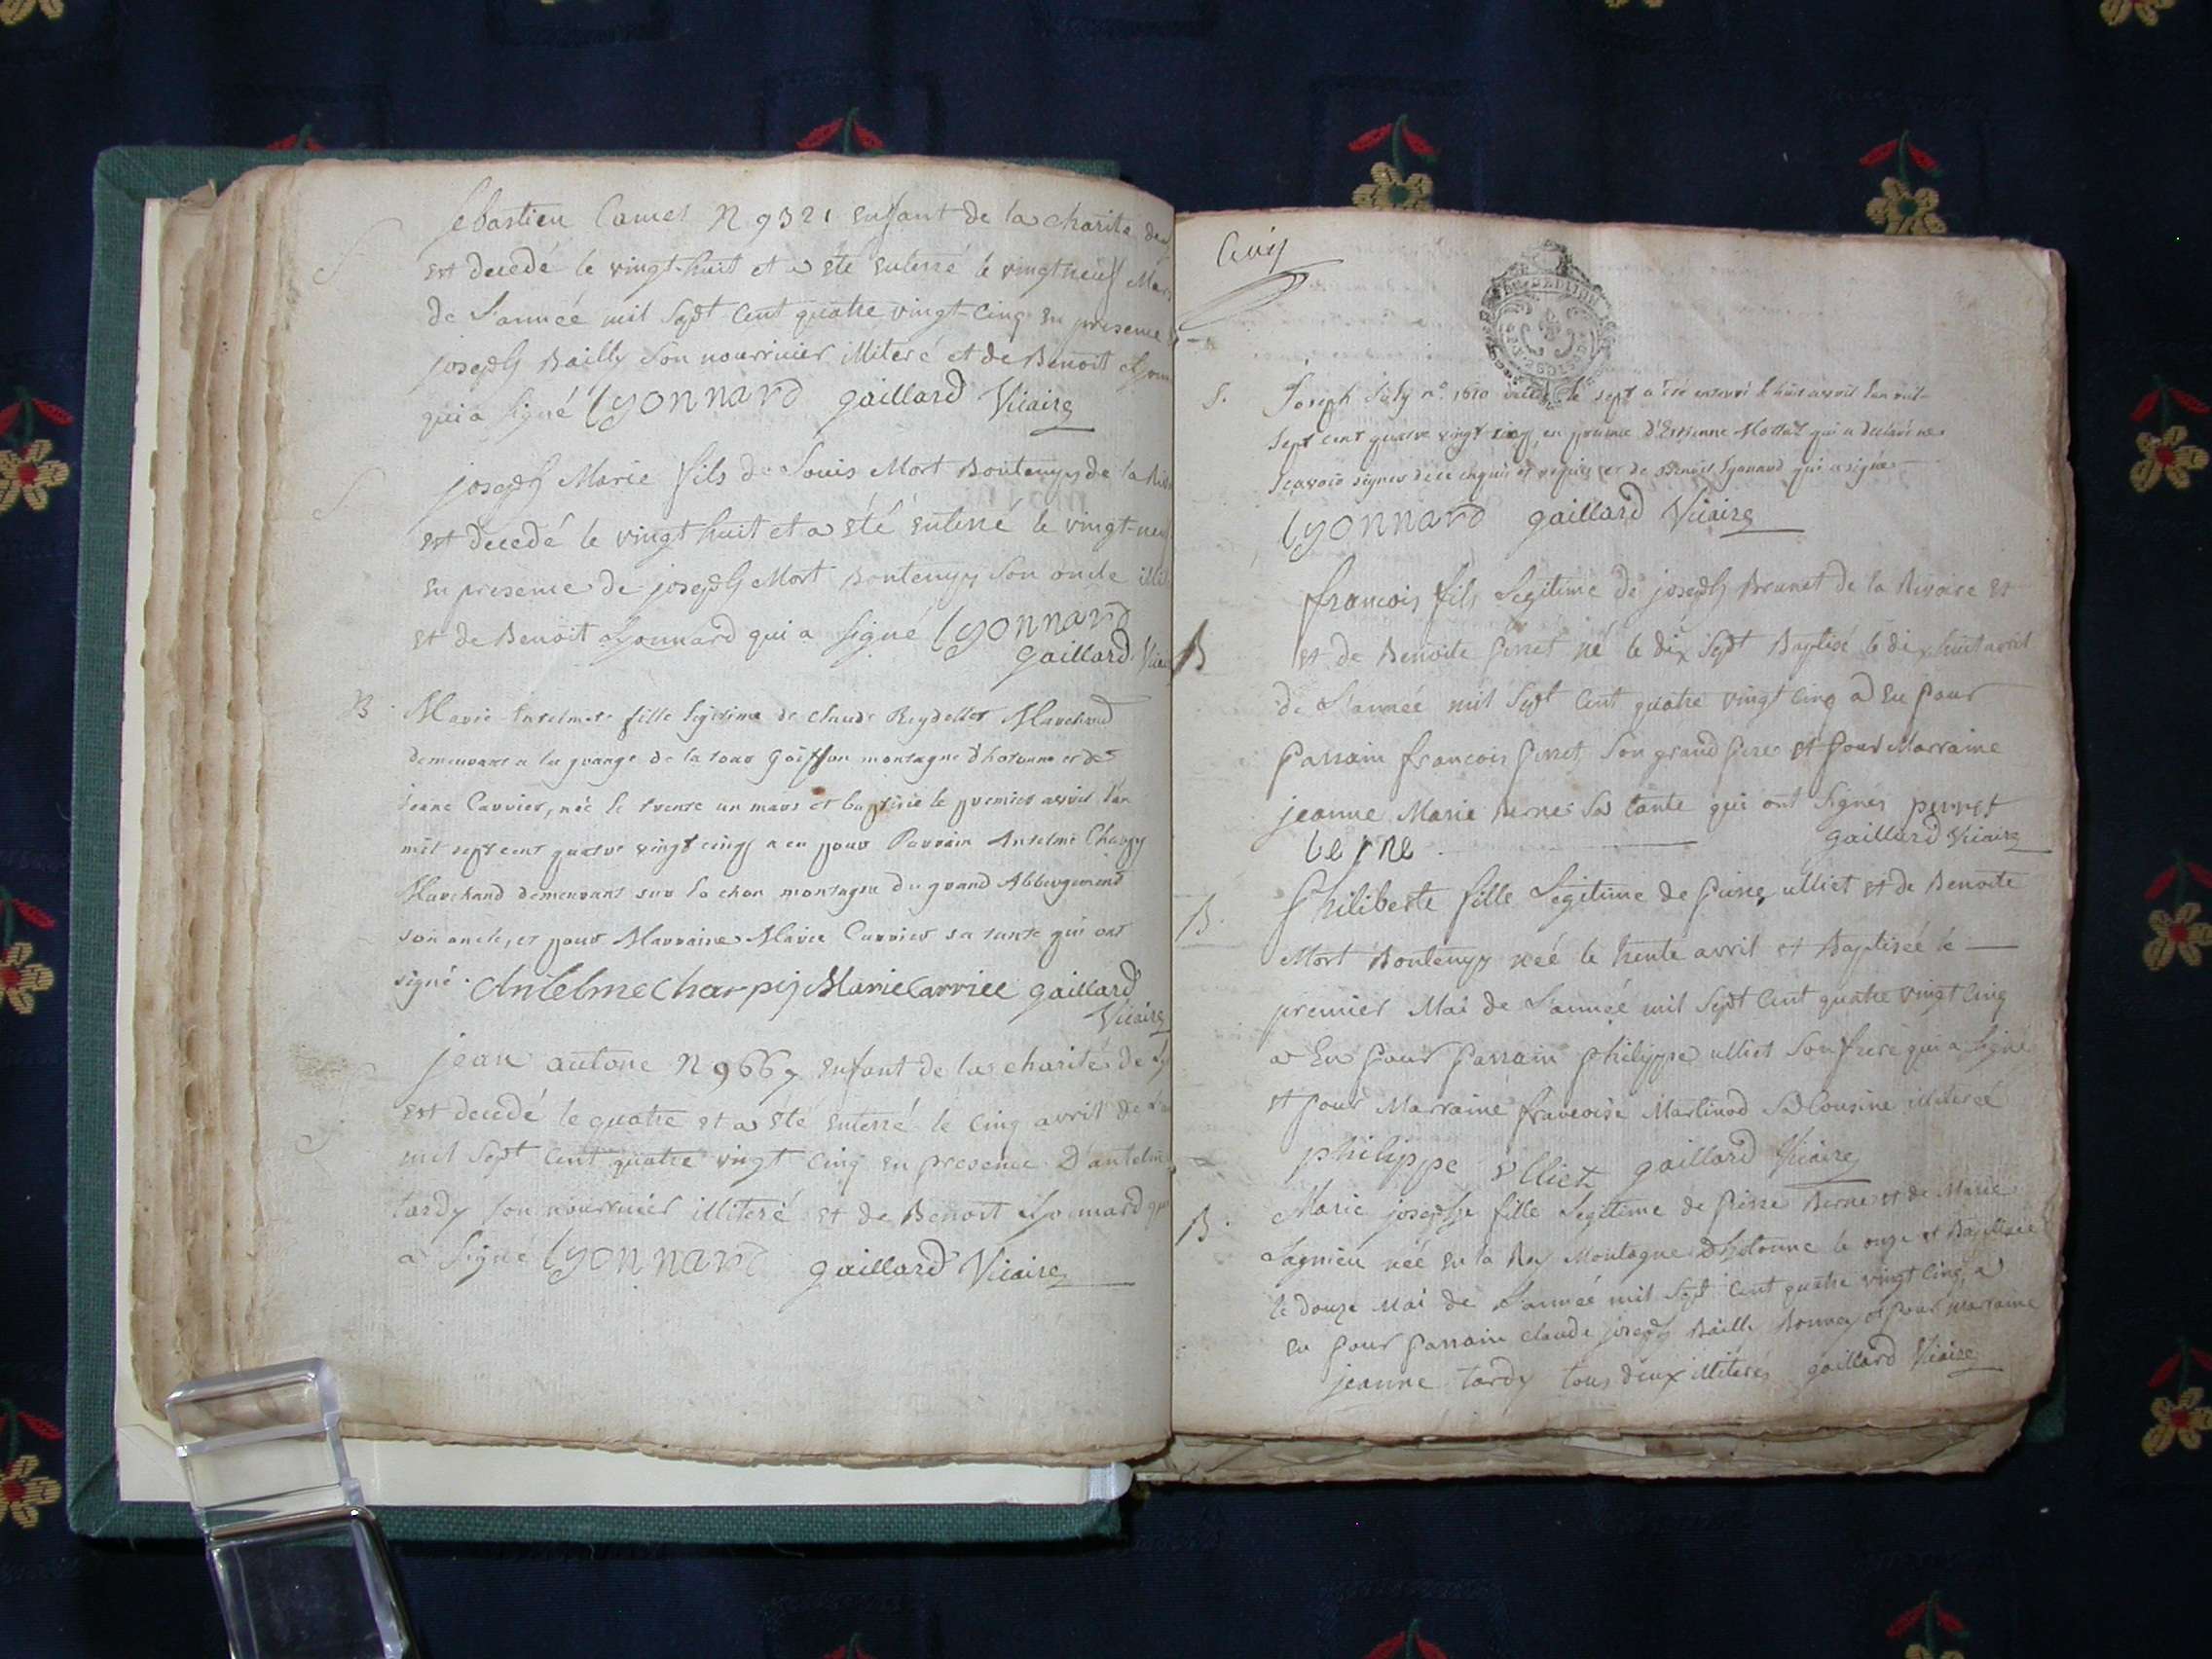 S
Sebastien Camet N 9321 enfant de la charité de
est decedé le vingt-huit et a eté enterré le vingtneuf Mars
de l'année mil sept cent quatre vingt-cinq en presence
joseph Bailly son nourricier illiteré et de Benoit Lyonn
qui a signé Lyonnard gaillard Vicaire
S
joseph Marie fils de Louis Mort Bontemps de la
est decedé le vingt huit et a été enterré le vingt-neu
en presence de joseph Mort Bontemps son oncle illit
et de Benoit Lyonnard qui a signé Lyonnard
gaillard Vicai
B
Marie Anselmete fille legitime de claude Reydellet Marchand
demeurant a la grange de la tour goiffon montagne d'hotonne et de
jeane Carrier, née le trente un mars et baptisée le premier avril l'an
mil sept cent quatre vingt cinq a eu pour Parrain Anselme Charpy
Marchand demeurant sur la chon montagne du grand Abbergement
son oncle, et pour Marraine Marie Carrier sa tante qui ont
signé. Antelme Charpy Marie Carriee gaillard
Vicaire
S
jean antone N 9667 enfant de la charité de Ly
est decedé le quatre et a eté enterré le cinq avril de l'an
mil sept cent quatre vingt cinq en presence D'antelm
tardy son nourricier illiteré et de Benoit Lyonnard qui
a signé Lyonnard gaillard Vicaire
S.
Joseph n° 1610 decedé le sept a été enterré le huit avril l'an mil
sept cent quatre vingt cinq, en presence d'Estienne qui a declaré ne
scavoir signer de ce enquis et requis et de Benoit Lyonnard qui a signé
Lyonnard gaillard Vicaire
B
francois fils legitime de joseph Brunet de la Rivoire et
et de Benoite perret né le dix sept Baptisé le dix huit avril
de l'année mil sept cent quatre vingt cinq a eu pour
parrain francois perret son grand pere et pour Marraine
jeanne Marie berne sa tante qui ont signés perret
berne gaillard Vicaire
B.
Philiberte fille legitime de pierre ulliet et de Benoite
Mort Bontemps née le trente avril et Baptisée le
premier Mai de l'année mil sept cent quatre vingt cinq
a eu pour parrain philippe ulliet son frere qui a signé
et pour Marraine francoise Martinod sa Cousine illiterée
philippe ulliet gaillard Vicaire
B.
Marie josephe fille legitime de pierre Berne et de Marie
Lagnieu née en la Montagne d'hotonne le onze et Baptisée
le douze Mai de l'année mil sept cent quatre vingt cinq a
eu pour parrain claude joseph Bailly Bonnet et pour marraine
jeanne tardy tous deux illiterés gaillard Vicaire